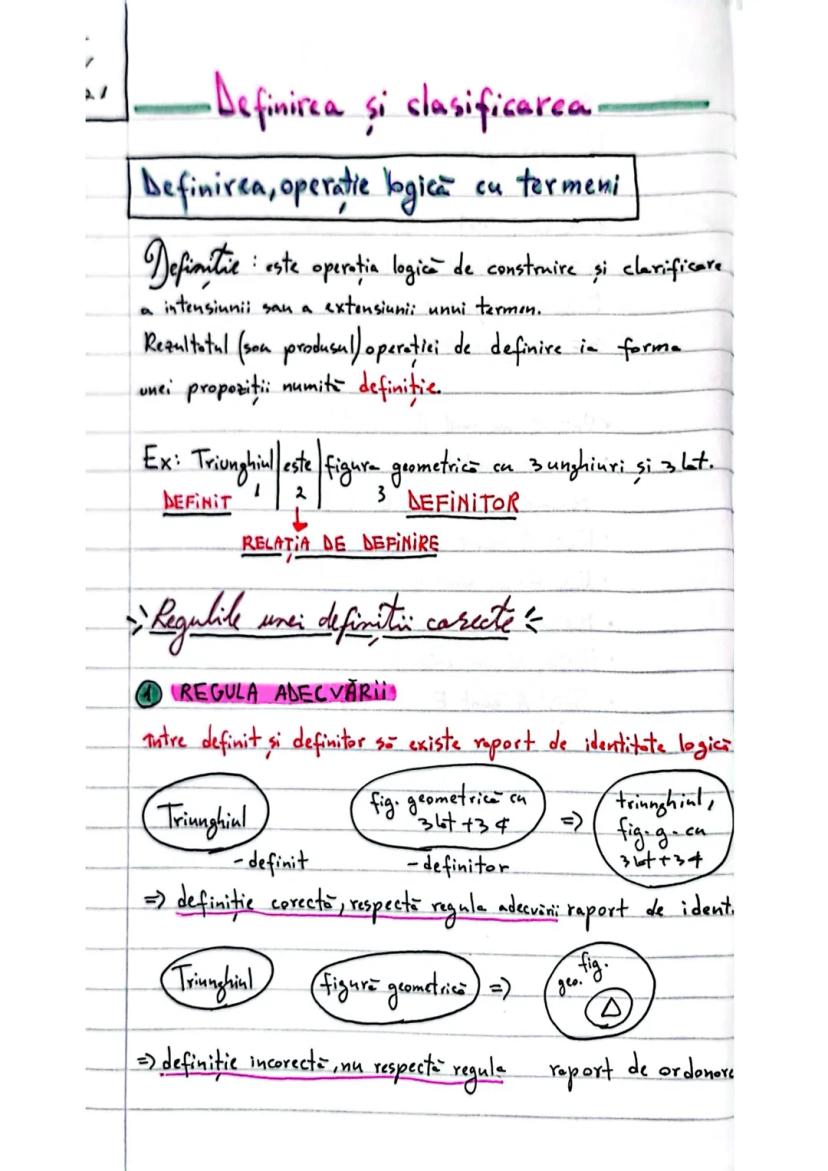 21
Definirea și clasificarea
Definirea, operație logică cu termeni
Definiție : este operația logică de construire și clarificare
a intensiunii sau a extensiunii unui termen.
Rezultatul (sau produsul) operației de definire ia forma
unei propoziții numită definiție.
Ex: Triunghiul | este | figura geometrică cu 3 unghiuri și 3 lat.
1 2 3
DEFINIT DEFINITOR
RELAȚIA DE DEFINIRE
Regulile unei definiții corecte
1 REGULA ADECVĂRII
Între definit și definitor să existe raport de identitate logică
Triunghiul fig. geometrică cu 3 lat + 3 ∢ => triunghiul, fig. g. cu 3 lat + 3 ∢
- definit - definitor
=> definiție corectă, respectă regula adecvării raport de ident.
Triunghiul figură geometrică => fig. geo. △
=> definiție incorectă, nu respectă regula raport de ordonare